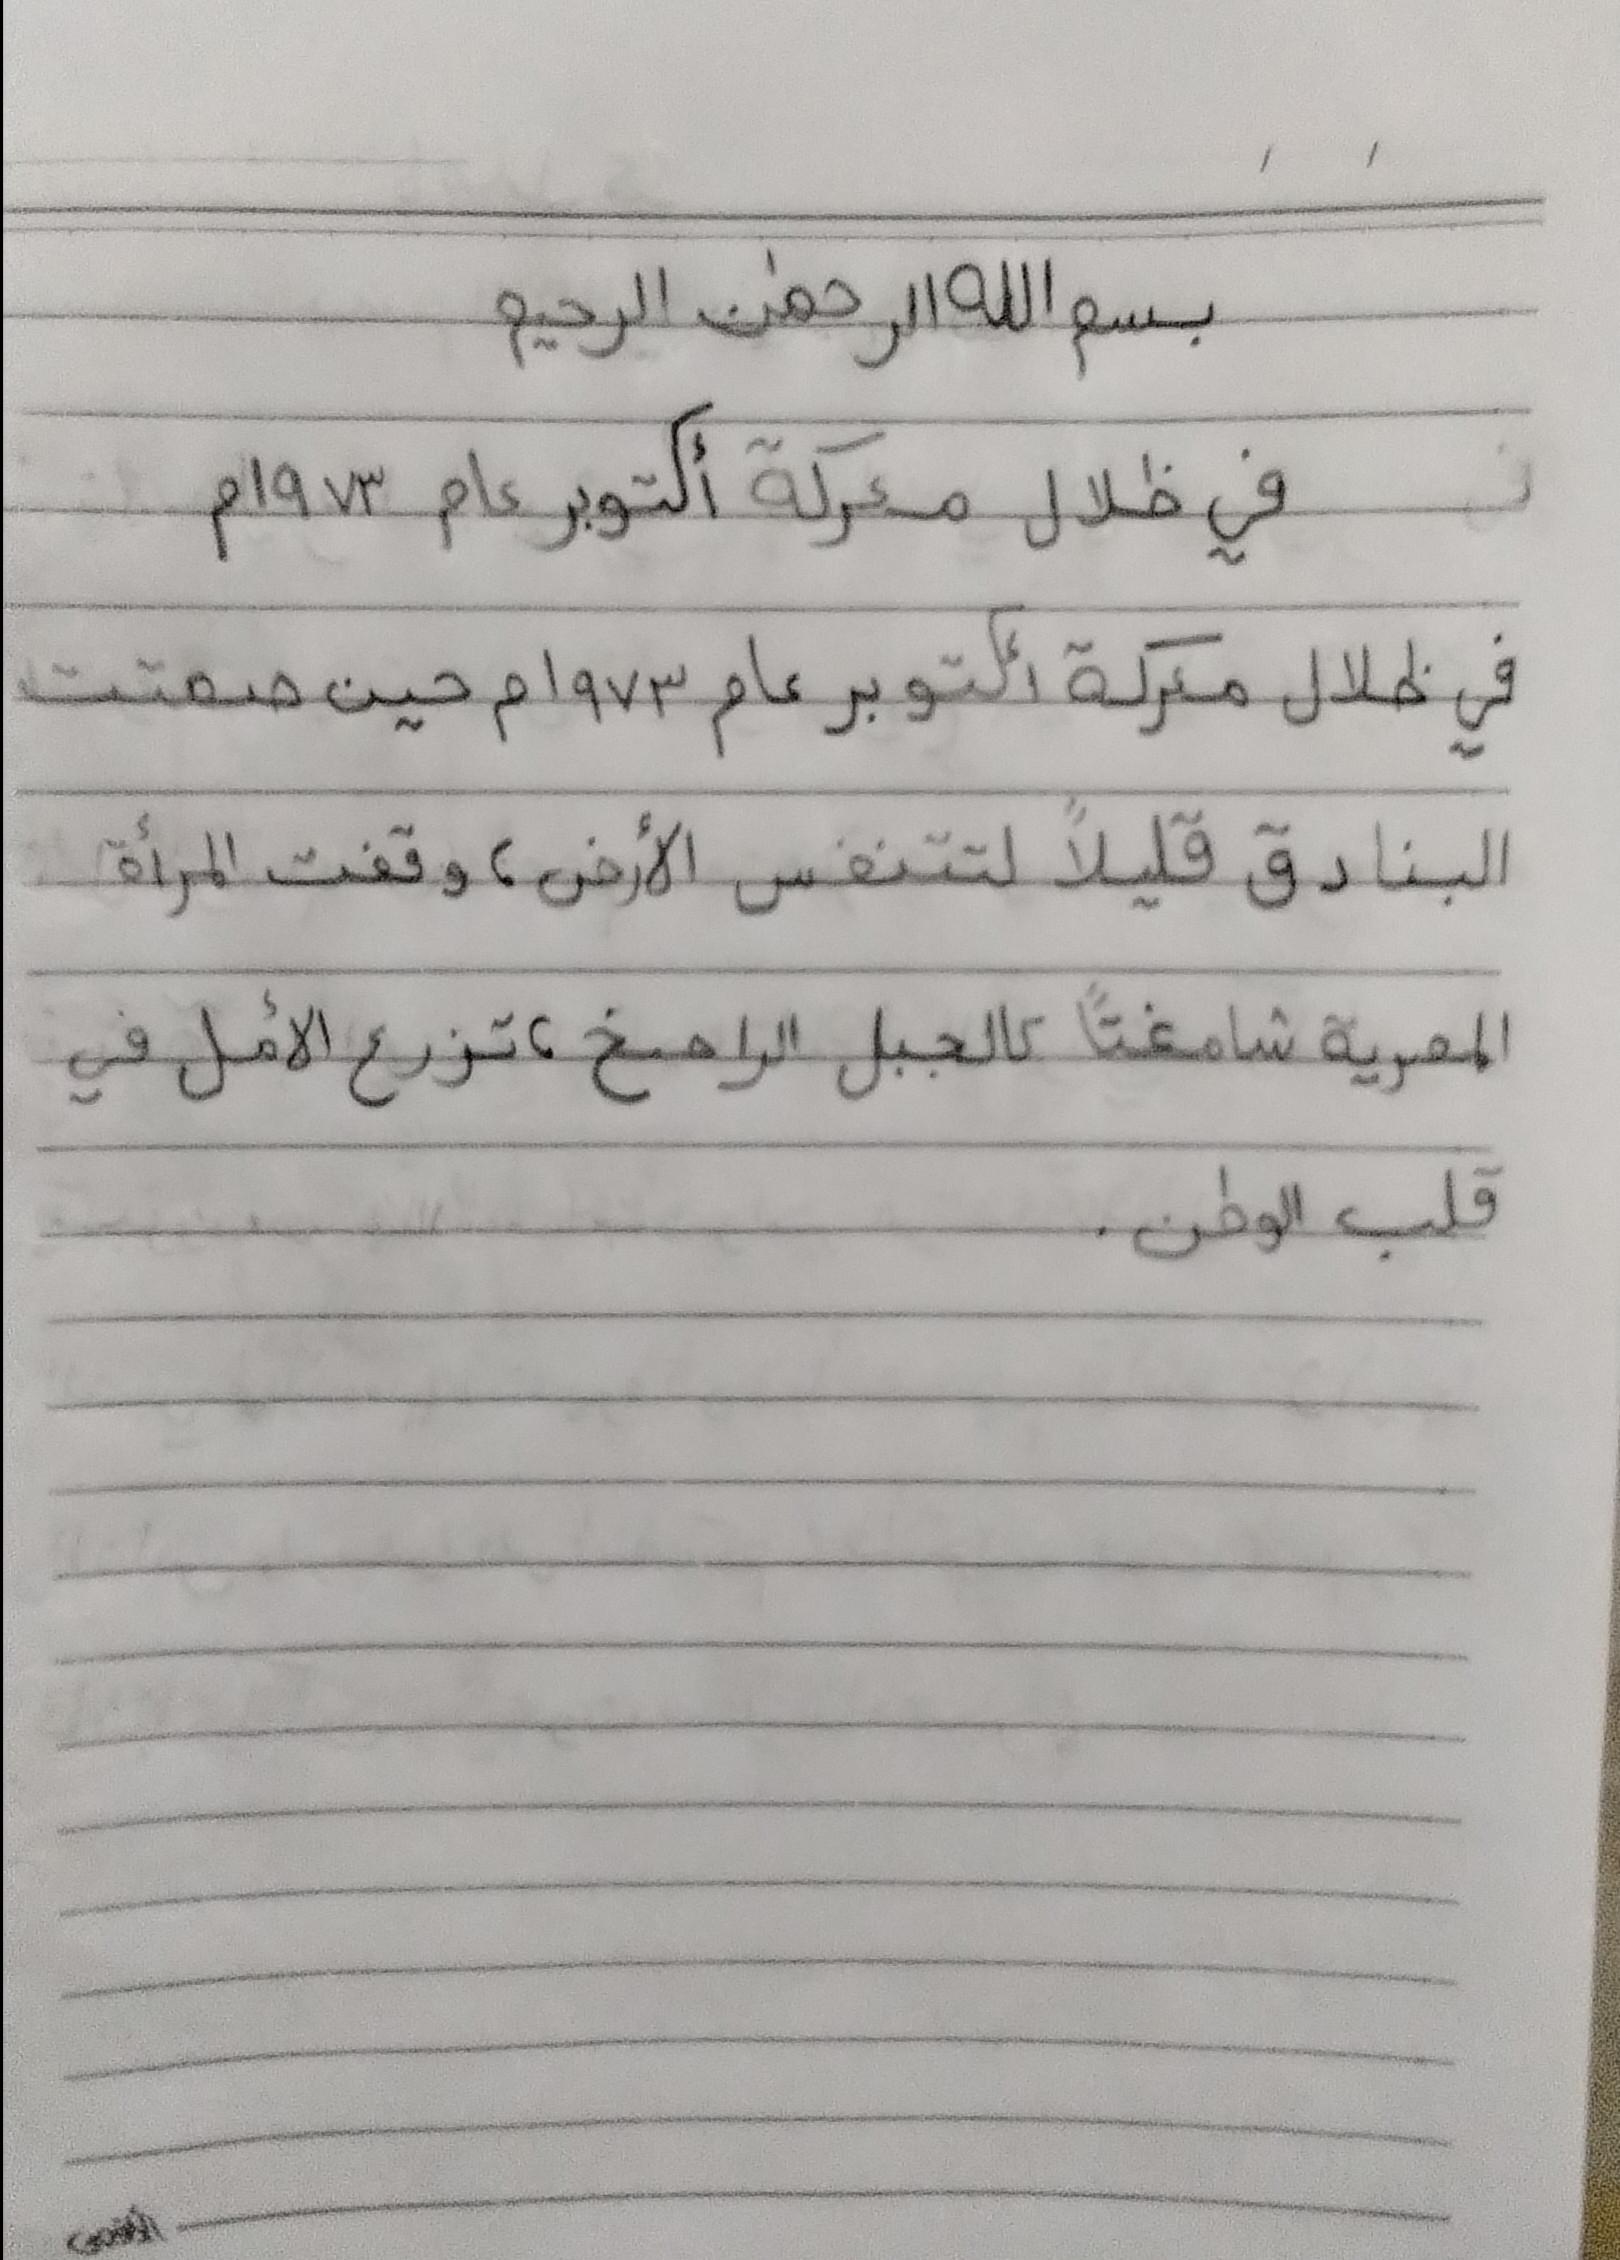 بسم الله الرحمن الرحيم
في ظلال معركة أكتوبر عام ١٩٧٣م
في ظلال معركة أكتوبر عام ١٩٧٣م حين صمتت
البنادق قليلاً لتتنفس الأرض، وقفت المرأة
المصرية شامغتاً كالجبل الراصخ، تزرع الأمل في
قلب الوطن.